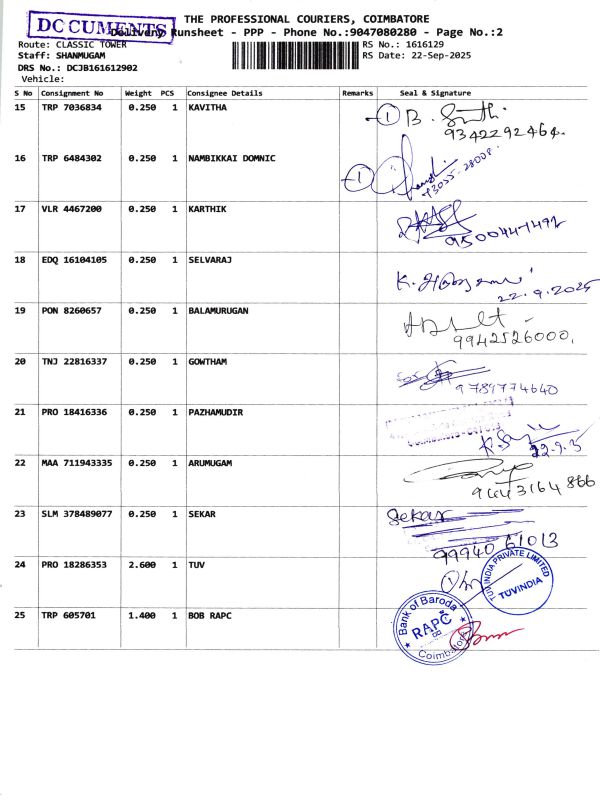 THE PROFESSIONAL COURIERS, COIMBATORE
DOCUMENTS
Delivery Runsheet - PPP - Phone No.:9047080280 - Page No.:2
Route: CLASSIC TOWER
RS No.: 1616129
Staff: SHANMUGAM
RS Date: 22-Sep-2025
DRS No.: DCJB161612902
Vehicle:
S No Consignment No Weight PCS Consignee Details Remarks Seal & Signature
15 TRP 7036834 0.250 1 KAVITHA
9342292464
16 TRP 6484302 0.250 1 NAMBIKKAI DOMNIC
17 VLR 4467200 0.250 1 KARTHIK
18 EDQ 16104105 0.250 1 SELVARAJ
22.9.2025
19 PON 8260657 0.250 1 BALAMURUGAN
9942526000
20 TNJ 22816337 0.250 1 GOWTHAM
9789774640
21 PRO 18416336 0.250 1 PAZHAMUDIR
22 MAA 711943335 0.250 1 ARUMUGAM
23 SLM 378489077 0.250 1 SEKAR
Sekar
99940 61013
24 PRO 18286353 2.600 1 TUV
TUV INDIA PRIVATE LIMITED
TUVINDIA
25 TRP 605701 1.400 1 BOB RAPC
Bank of Baroda
RAPC
Coimbatore